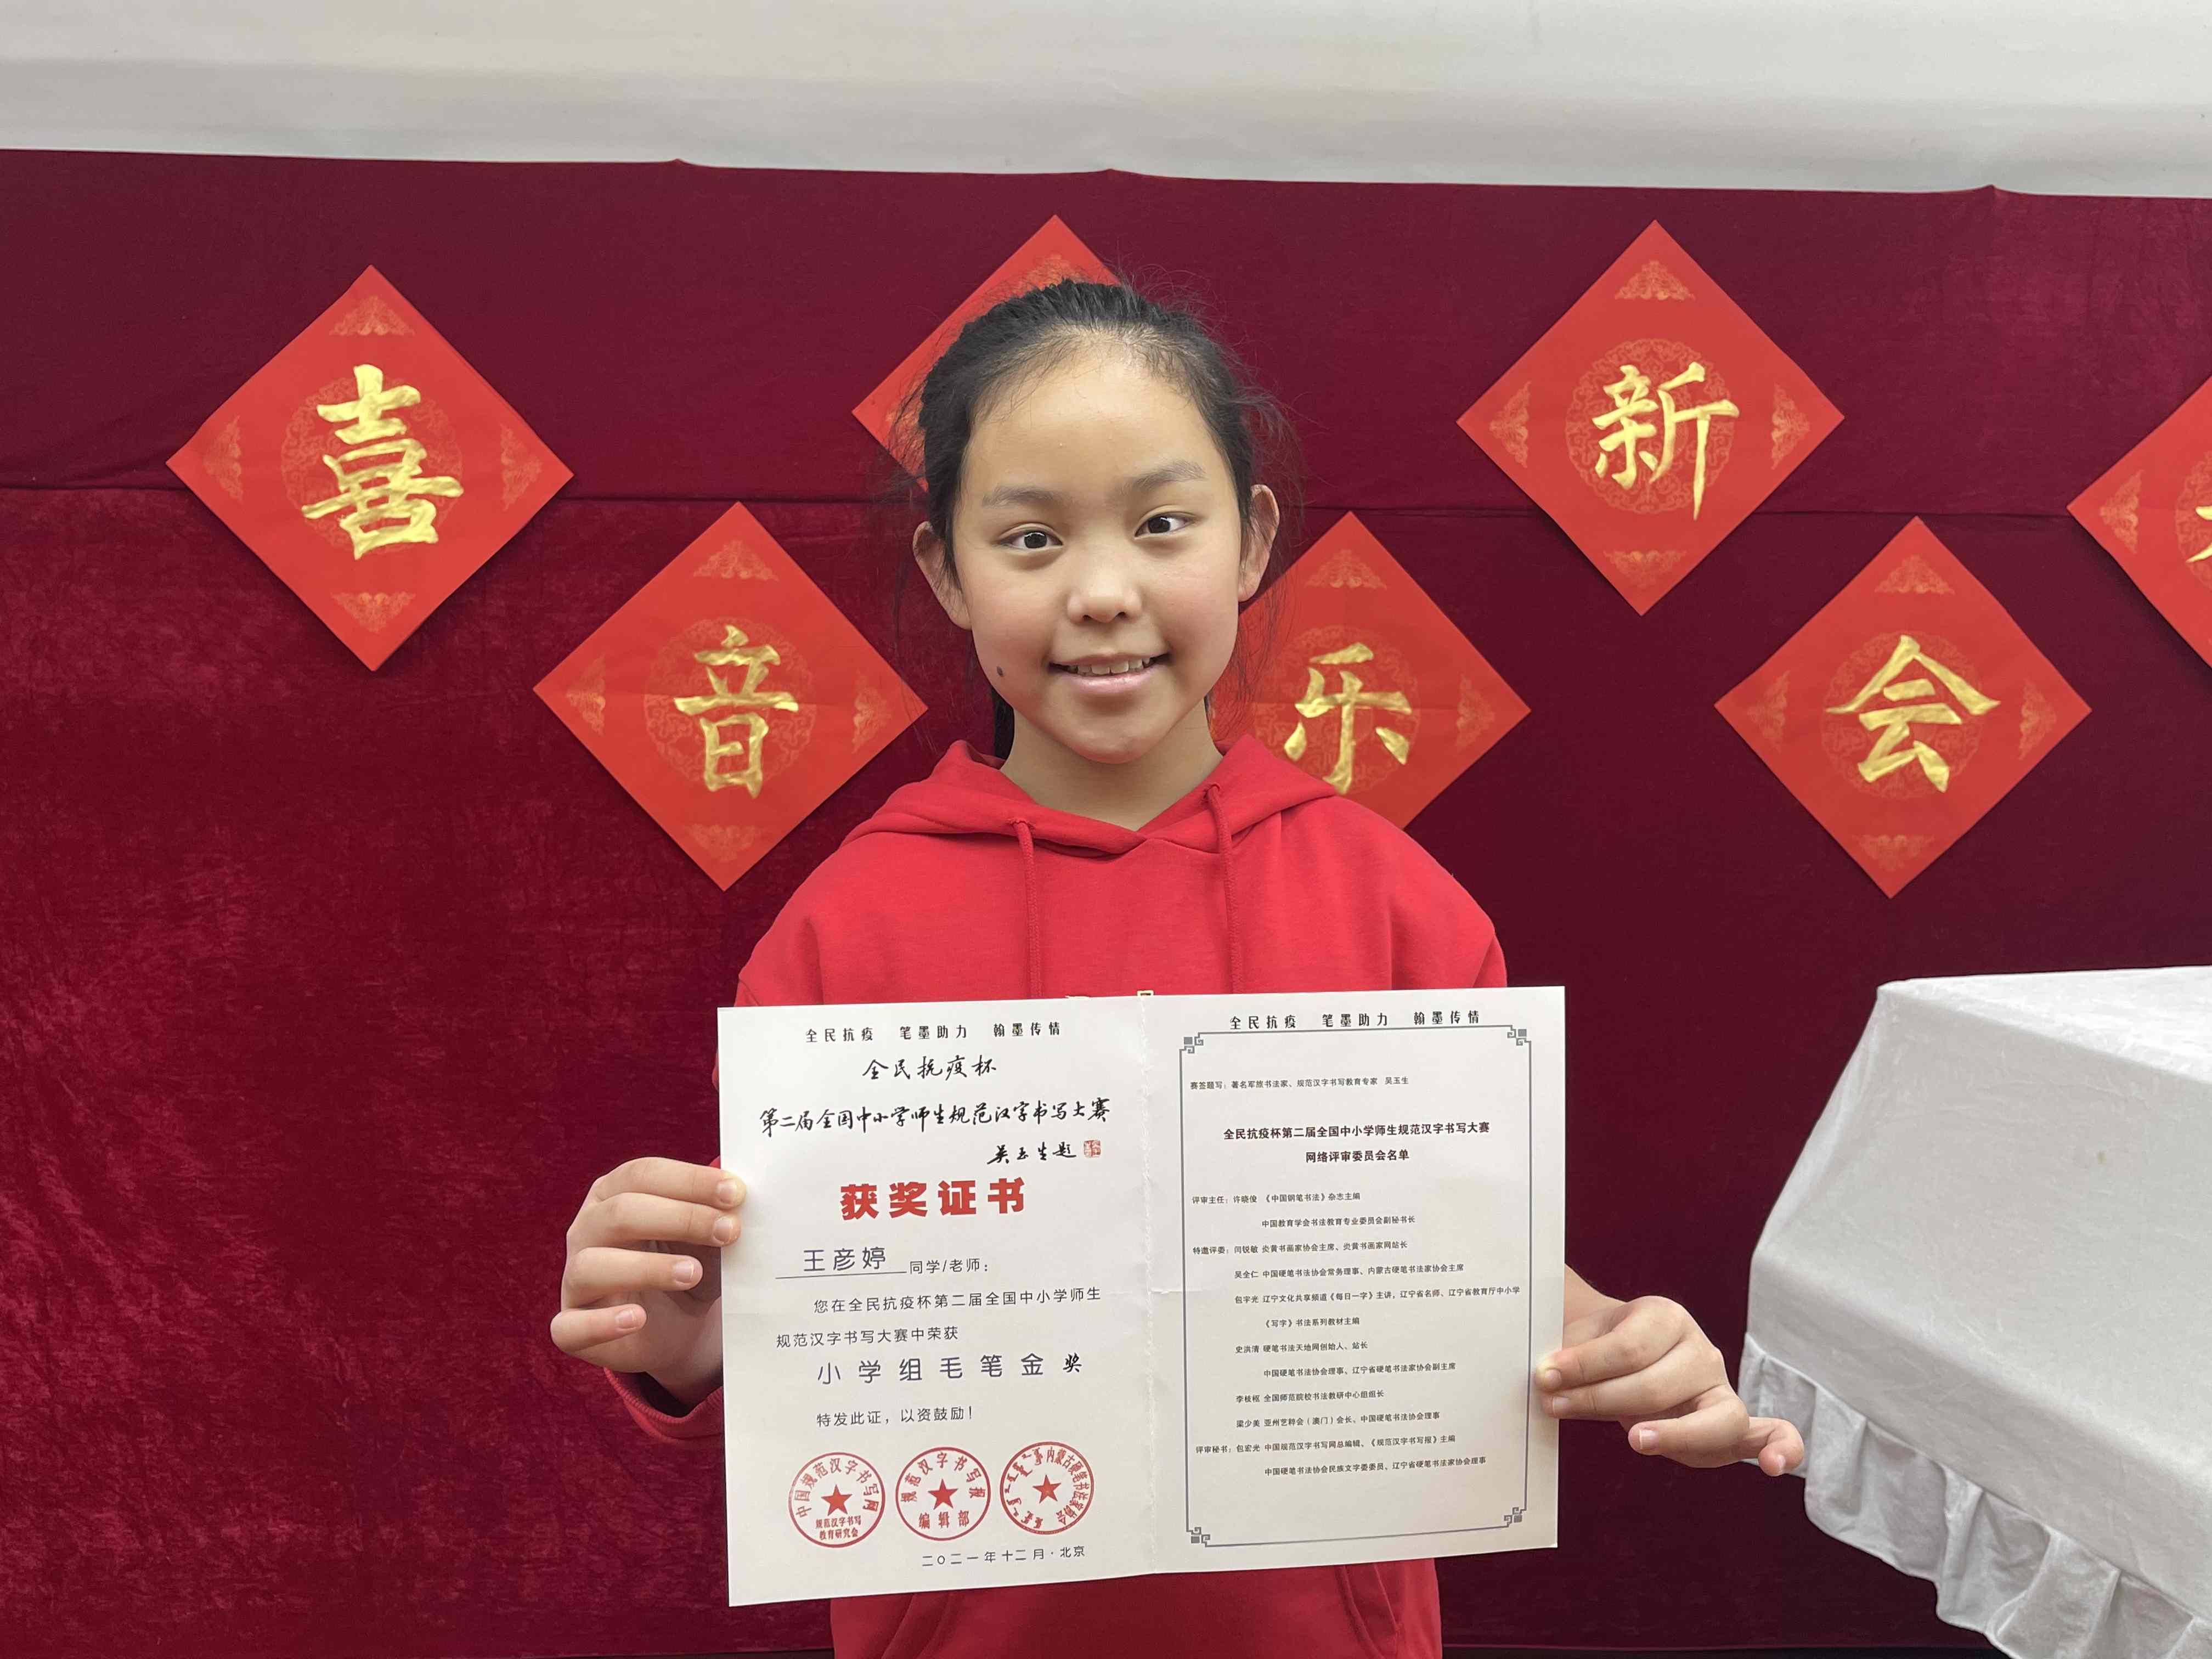 喜
新
音
乐
会
全民抗疫 笔墨助力 翰墨传情
全民抗疫杯
第二届全国中小学师生规范汉字书写大赛
吴玉生题
获奖证书
王彦婷 同学/老师：
您在全民抗疫杯第二届全国中小学师生
规范汉字书写大赛中荣获
小学组毛笔金奖
特发此证，以资鼓励！
中国规范汉字书写网
规范汉字书写
教育研究会
规范汉字书写报
编辑部
内蒙古硬笔书法家协会
二〇二一年十二月·北京
全民抗疫 笔墨助力 翰墨传情
赛签题写：著名军旅书法家、规范汉字书写教育专家 吴玉生
全民抗疫杯第二届全国中小学师生规范汉字书写大赛
网络评审委员会名单
评审主任：许晓俊 《中国钢笔书法》杂志主编
中国教育学会书法教育专业委员会副秘书长
特邀评委：闫锐敏 炎黄书画家协会主席、炎黄书画家网站长
吴全仁 中国硬笔书法协会常务理事、内蒙古硬笔书法家协会主席
包宇光 辽宁文化共享频道《每日一字》主讲，辽宁省名师、辽宁省教育厅中小学
《写字》书法系列教材主编
史洪清 硬笔书法天地网创始人、站长
中国硬笔书法协会理事、辽宁省硬笔书法家协会副主席
李枝枢 全国师范院校书法教研中心组组长
梁少美 亚州艺粹会（澳门）会长、中国硬笔书法协会理事
评审秘书：包宏光 中国规范汉字书写网总编辑、《规范汉字书写报》主编
中国硬笔书法协会民族文字委委员、辽宁省硬笔书法家协会理事